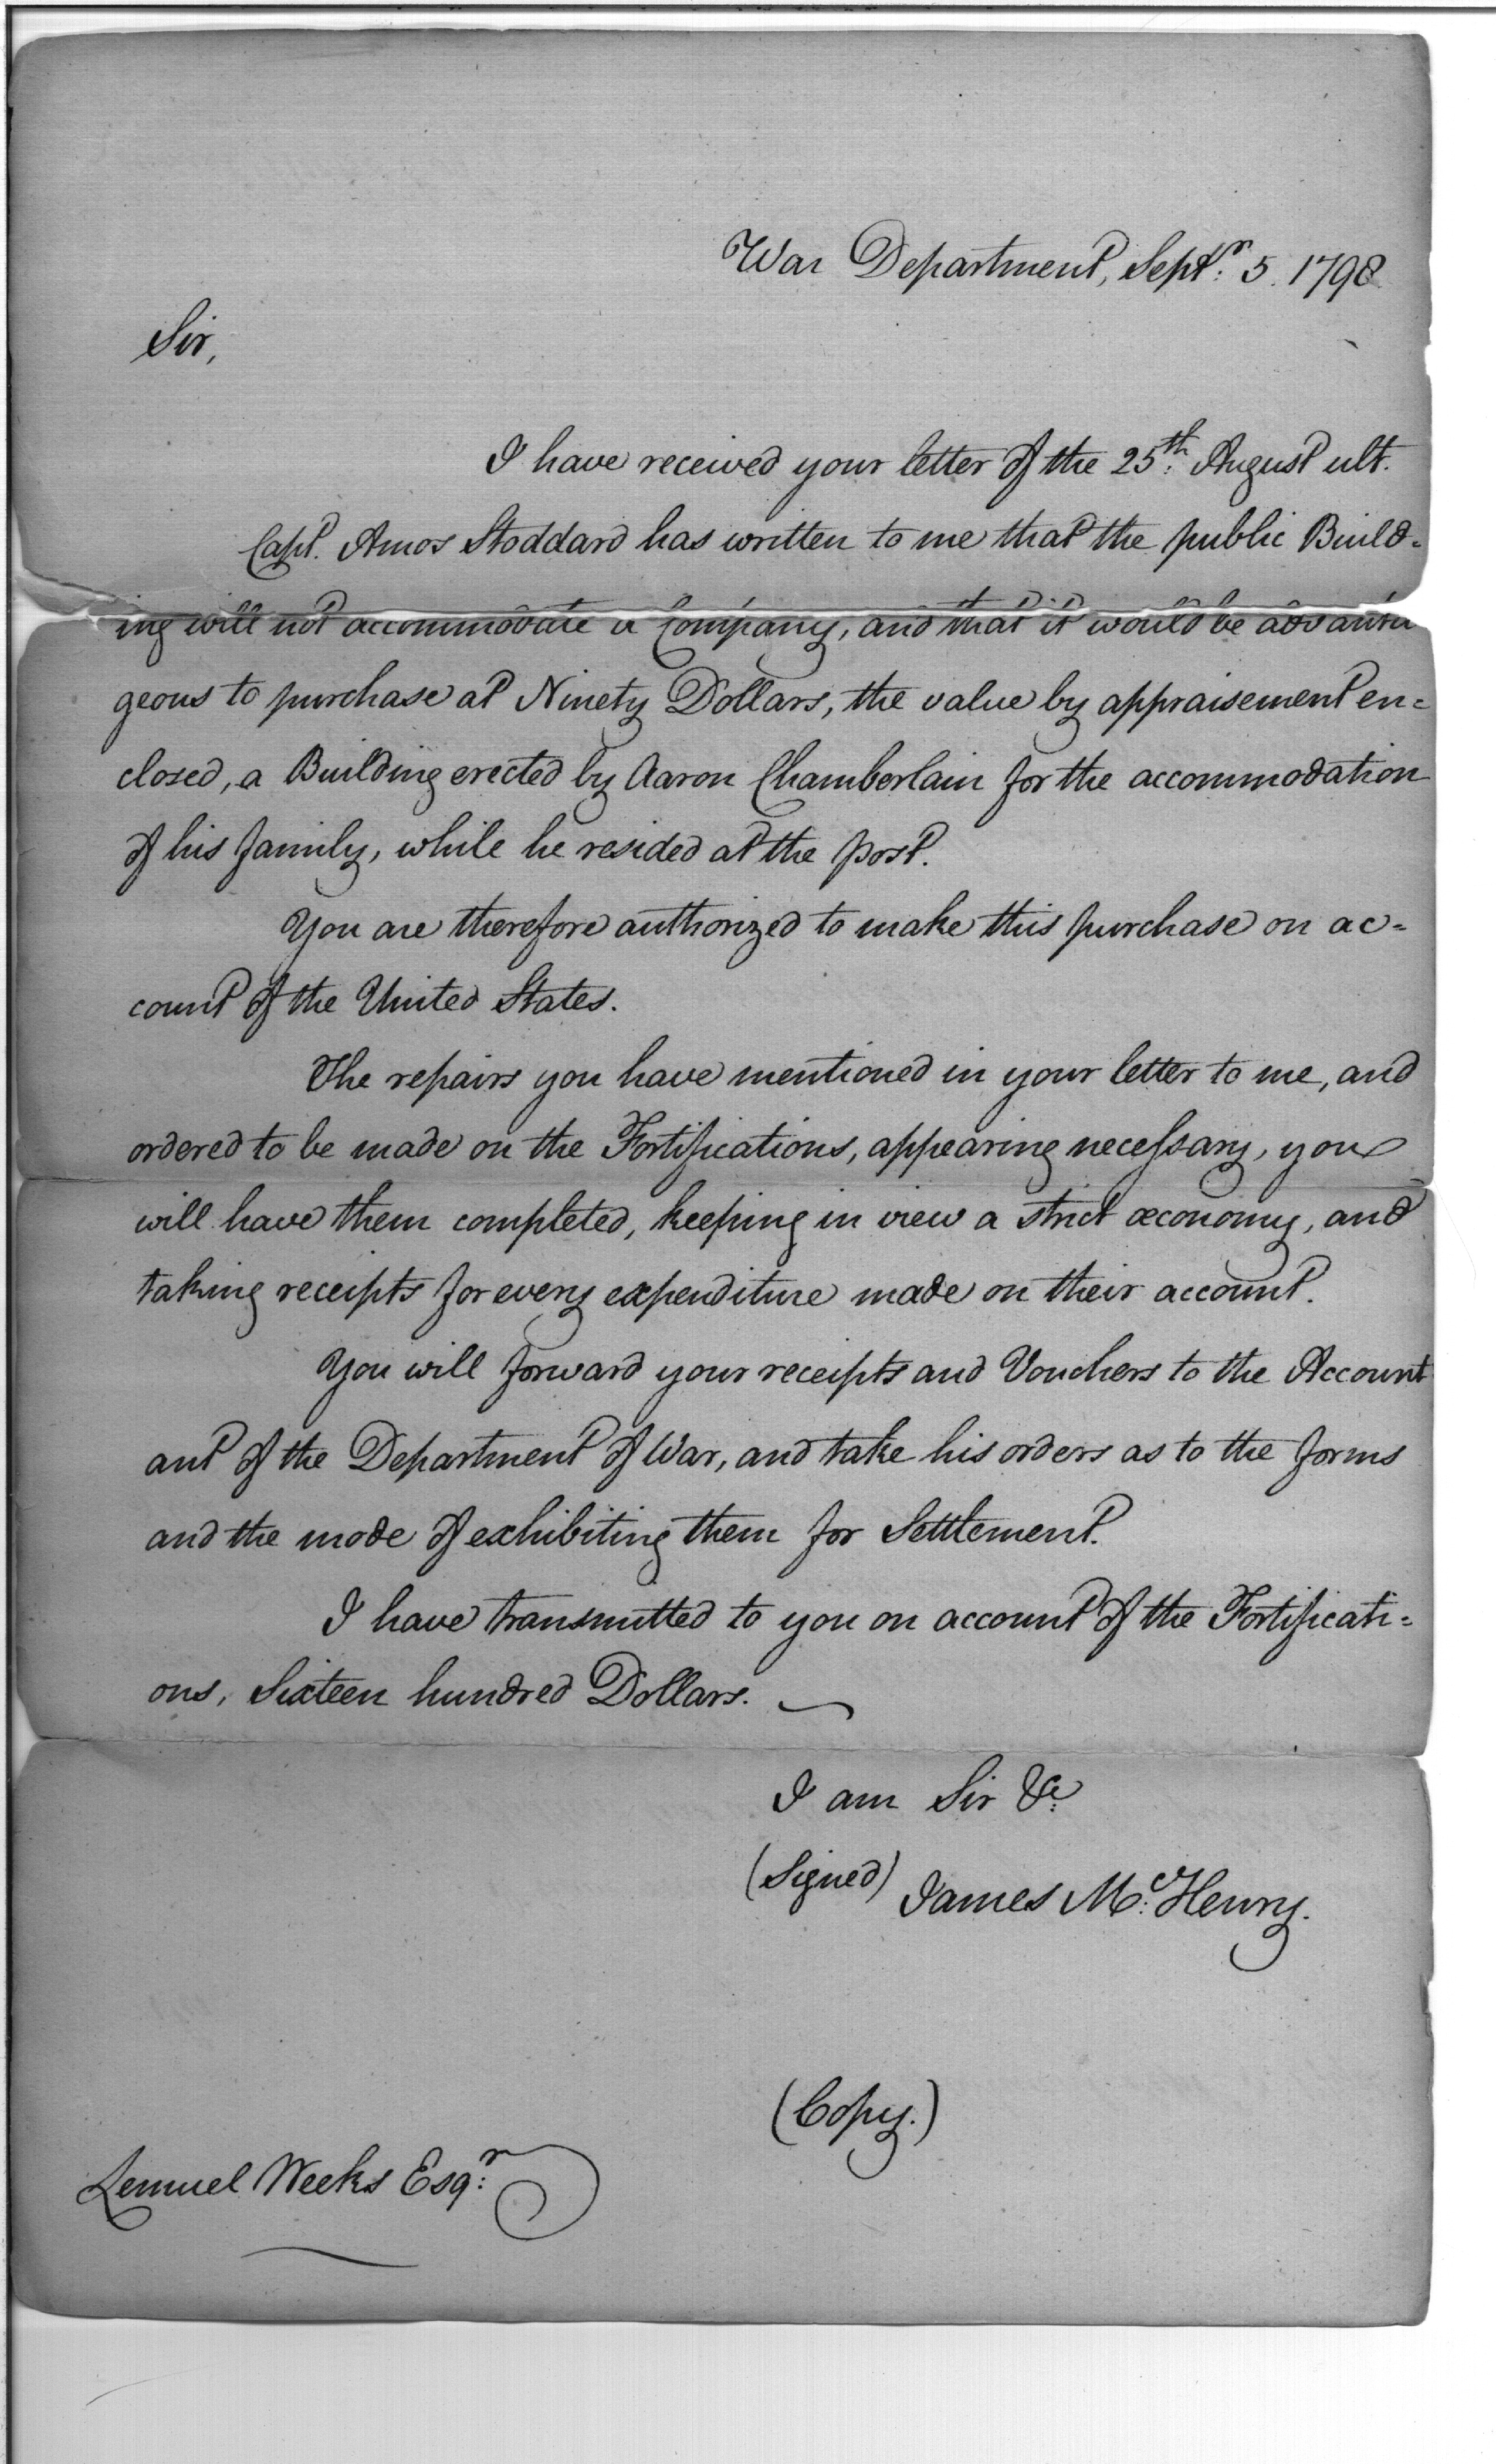 War Department, Septr: 5. 1798
Sir,
I have received your letter of the 25th: August ult.
Capt. Amos Stoddard has written to me that the public Build=
ing will not accommodate a Company, and that it would be advanta
geous to purchase at Ninety Dollars, the value by appraisement en=
closed, a Building erected by Aaron Chamberlain for the accommodation
of his family, while he resided at the post.
You are therefore authorized to make this purchase on ac=
count of the United States.
The repairs you have mentioned in your letter to me, and
ordered to be made on the Fortifications, appearing necessary, you
will have them completed, keeping in view a strict œconomy, and
taking receipts for every expenditure made on their account.
You will forward your receipts and Vouchers to the Account
ant of the Department of War, and take his orders as to the forms
and the mode of exhibiting them for Settlement.
I have transmitted to you on account of the Fortificati=
ons, Sixteen hundred Dollars.
I am Sir &c:
(Signed) James Mc: Henry.
(Copy.)
Lemuel Weeks Esqr: